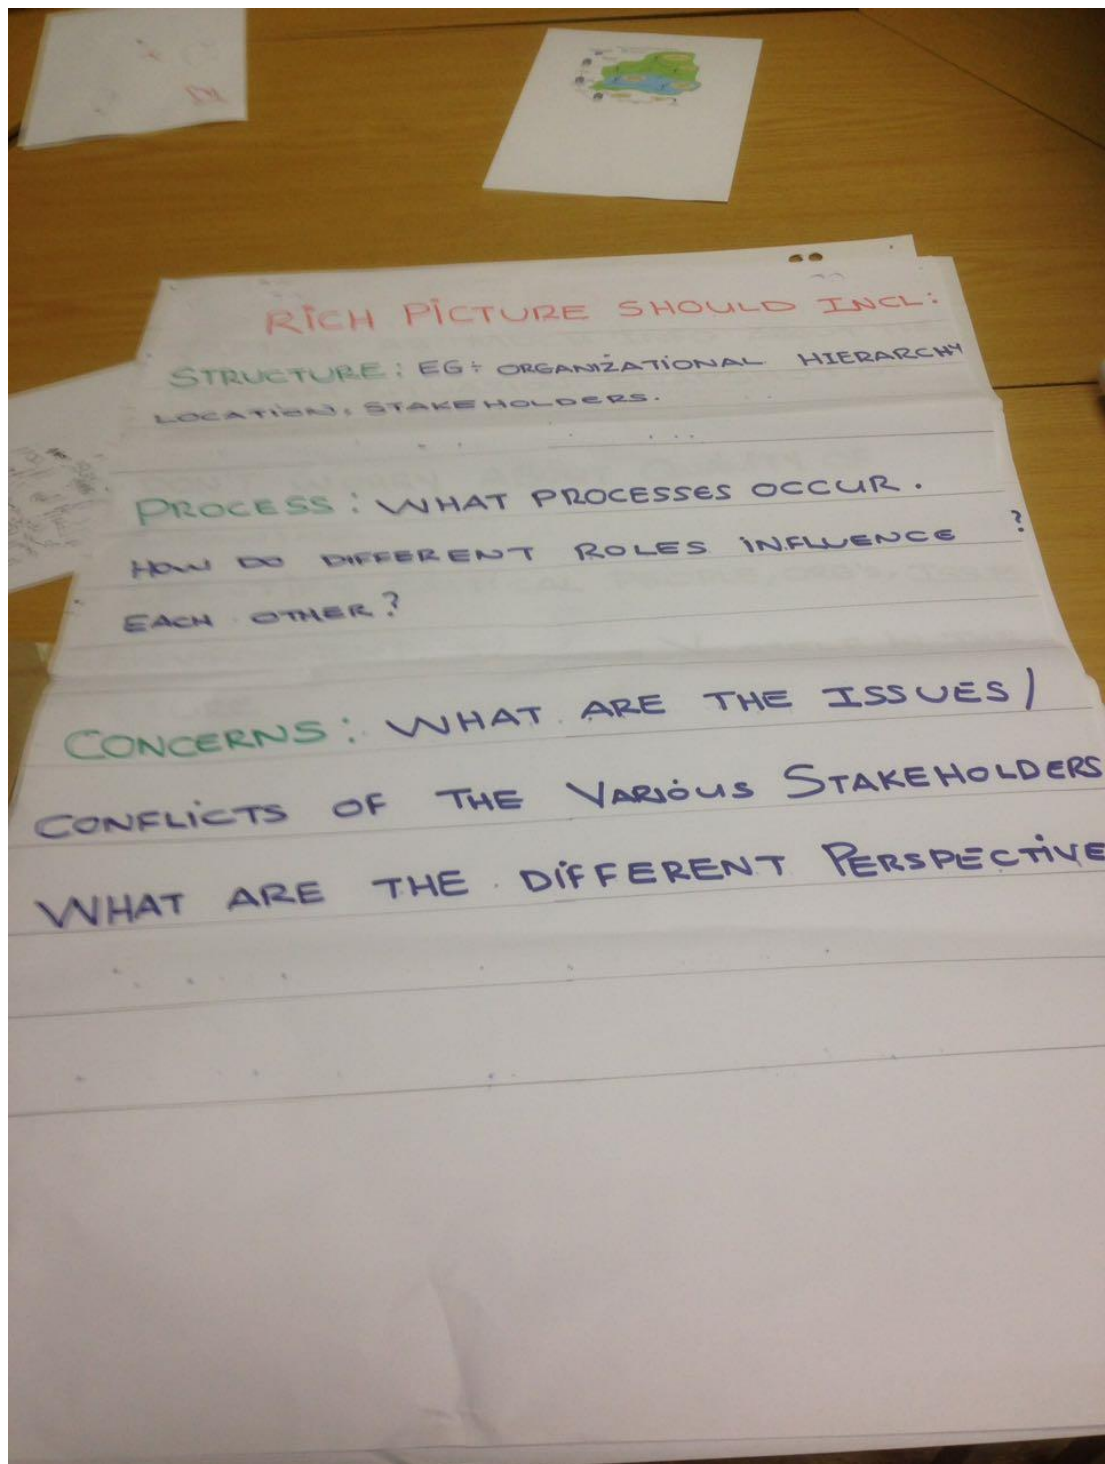 RICH PICTURE SHOULD INCL:
STRUCTURE: EG: ORGANIZATIONAL HIERARCHY
LOCATION, STAKEHOLDERS.
PROCESS: WHAT PROCESSES OCCUR.
HOW DO DIFFERENT ROLES INFLUENCE ?
EACH OTHER?
CONCERNS: WHAT ARE THE ISSUES/
CONFLICTS OF THE VARIOUS STAKEHOLDERS
WHAT ARE THE DIFFERENT PERSPECTIVE